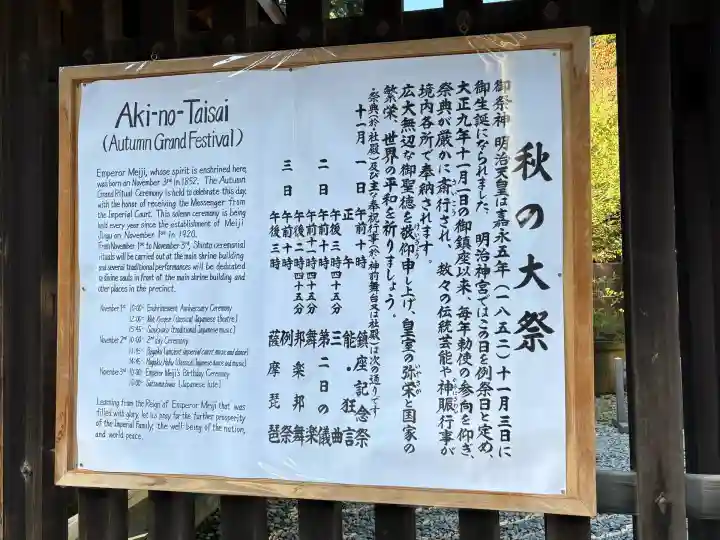 Aki-no-Taisai
(Autumn Grand Festival)
Emperor Meiji, whose spirit is enshrined here,
was born on November 3rd in 1852. The Autumn
Grand Ritual Ceremony is held to celebrate this day,
with the honor of receiving the Messenger from
the Imperial Court. This solemn ceremony is being
held every year since the establishment of Meiji
Jingu on November 1st in 1920.
From November 1st to November 3rd, Shinto ceremonial
rituals will be carried out at the main shrine building
and several traditional performances will be dedicated
to divine souls in front of the main shrine building and
other places in the precinct.
November 1st 10:00~ Enshrinement Anniversary Ceremony
12:00~ Noh, Kyogen (classical Japanese theatre)
15:45~ Sankyoku (traditional Japanese music)
November 2nd 10:00~ 2nd day Ceremony
11:45~ Bugaku (ancient imperial court music and dance)
14:45~ Hogaku Hobu (classical Japanese dance and music)
November 3rd 10:00~ Emperor Meiji's Birthday Ceremony
15:00~ Satsuma biwa (Japanese lute)
Learning from the Reign of Emperor Meiji that was
filled with glory, let us pray for the further prosperity
of the Imperial Family, the well-being of the nation,
and world peace.
秋の大祭
御祭神 明治天皇は嘉永五年(一八五二)十一月三日に
御生誕になられました。明治神宮ではこの日を例祭日と定め、
大正九年十一月一日の御鎮座以来、毎年勅使の参向を仰ぎ、
祭典が厳かに斎行され、数々の伝統芸能や神賑行事が
境内各所で奉納されます。
広大無辺な御聖徳を敬仰申し上げ、皇室の弥栄と国家の
繁栄、世界の平和を祈りましょう。
・祭典(於:社殿)及び主な奉祝行事(於:神前舞台又は社殿)は次の通りです
十一月一日 午前十時 鎮座記念祭
正午 能・狂言
午後三時四十五分 三曲
二日 午前十時 第二日の儀
午前十一時四十五分 舞楽
午後二時四十五分 邦楽邦舞
三日 午前十時 例祭
午後三時 薩摩琵琶